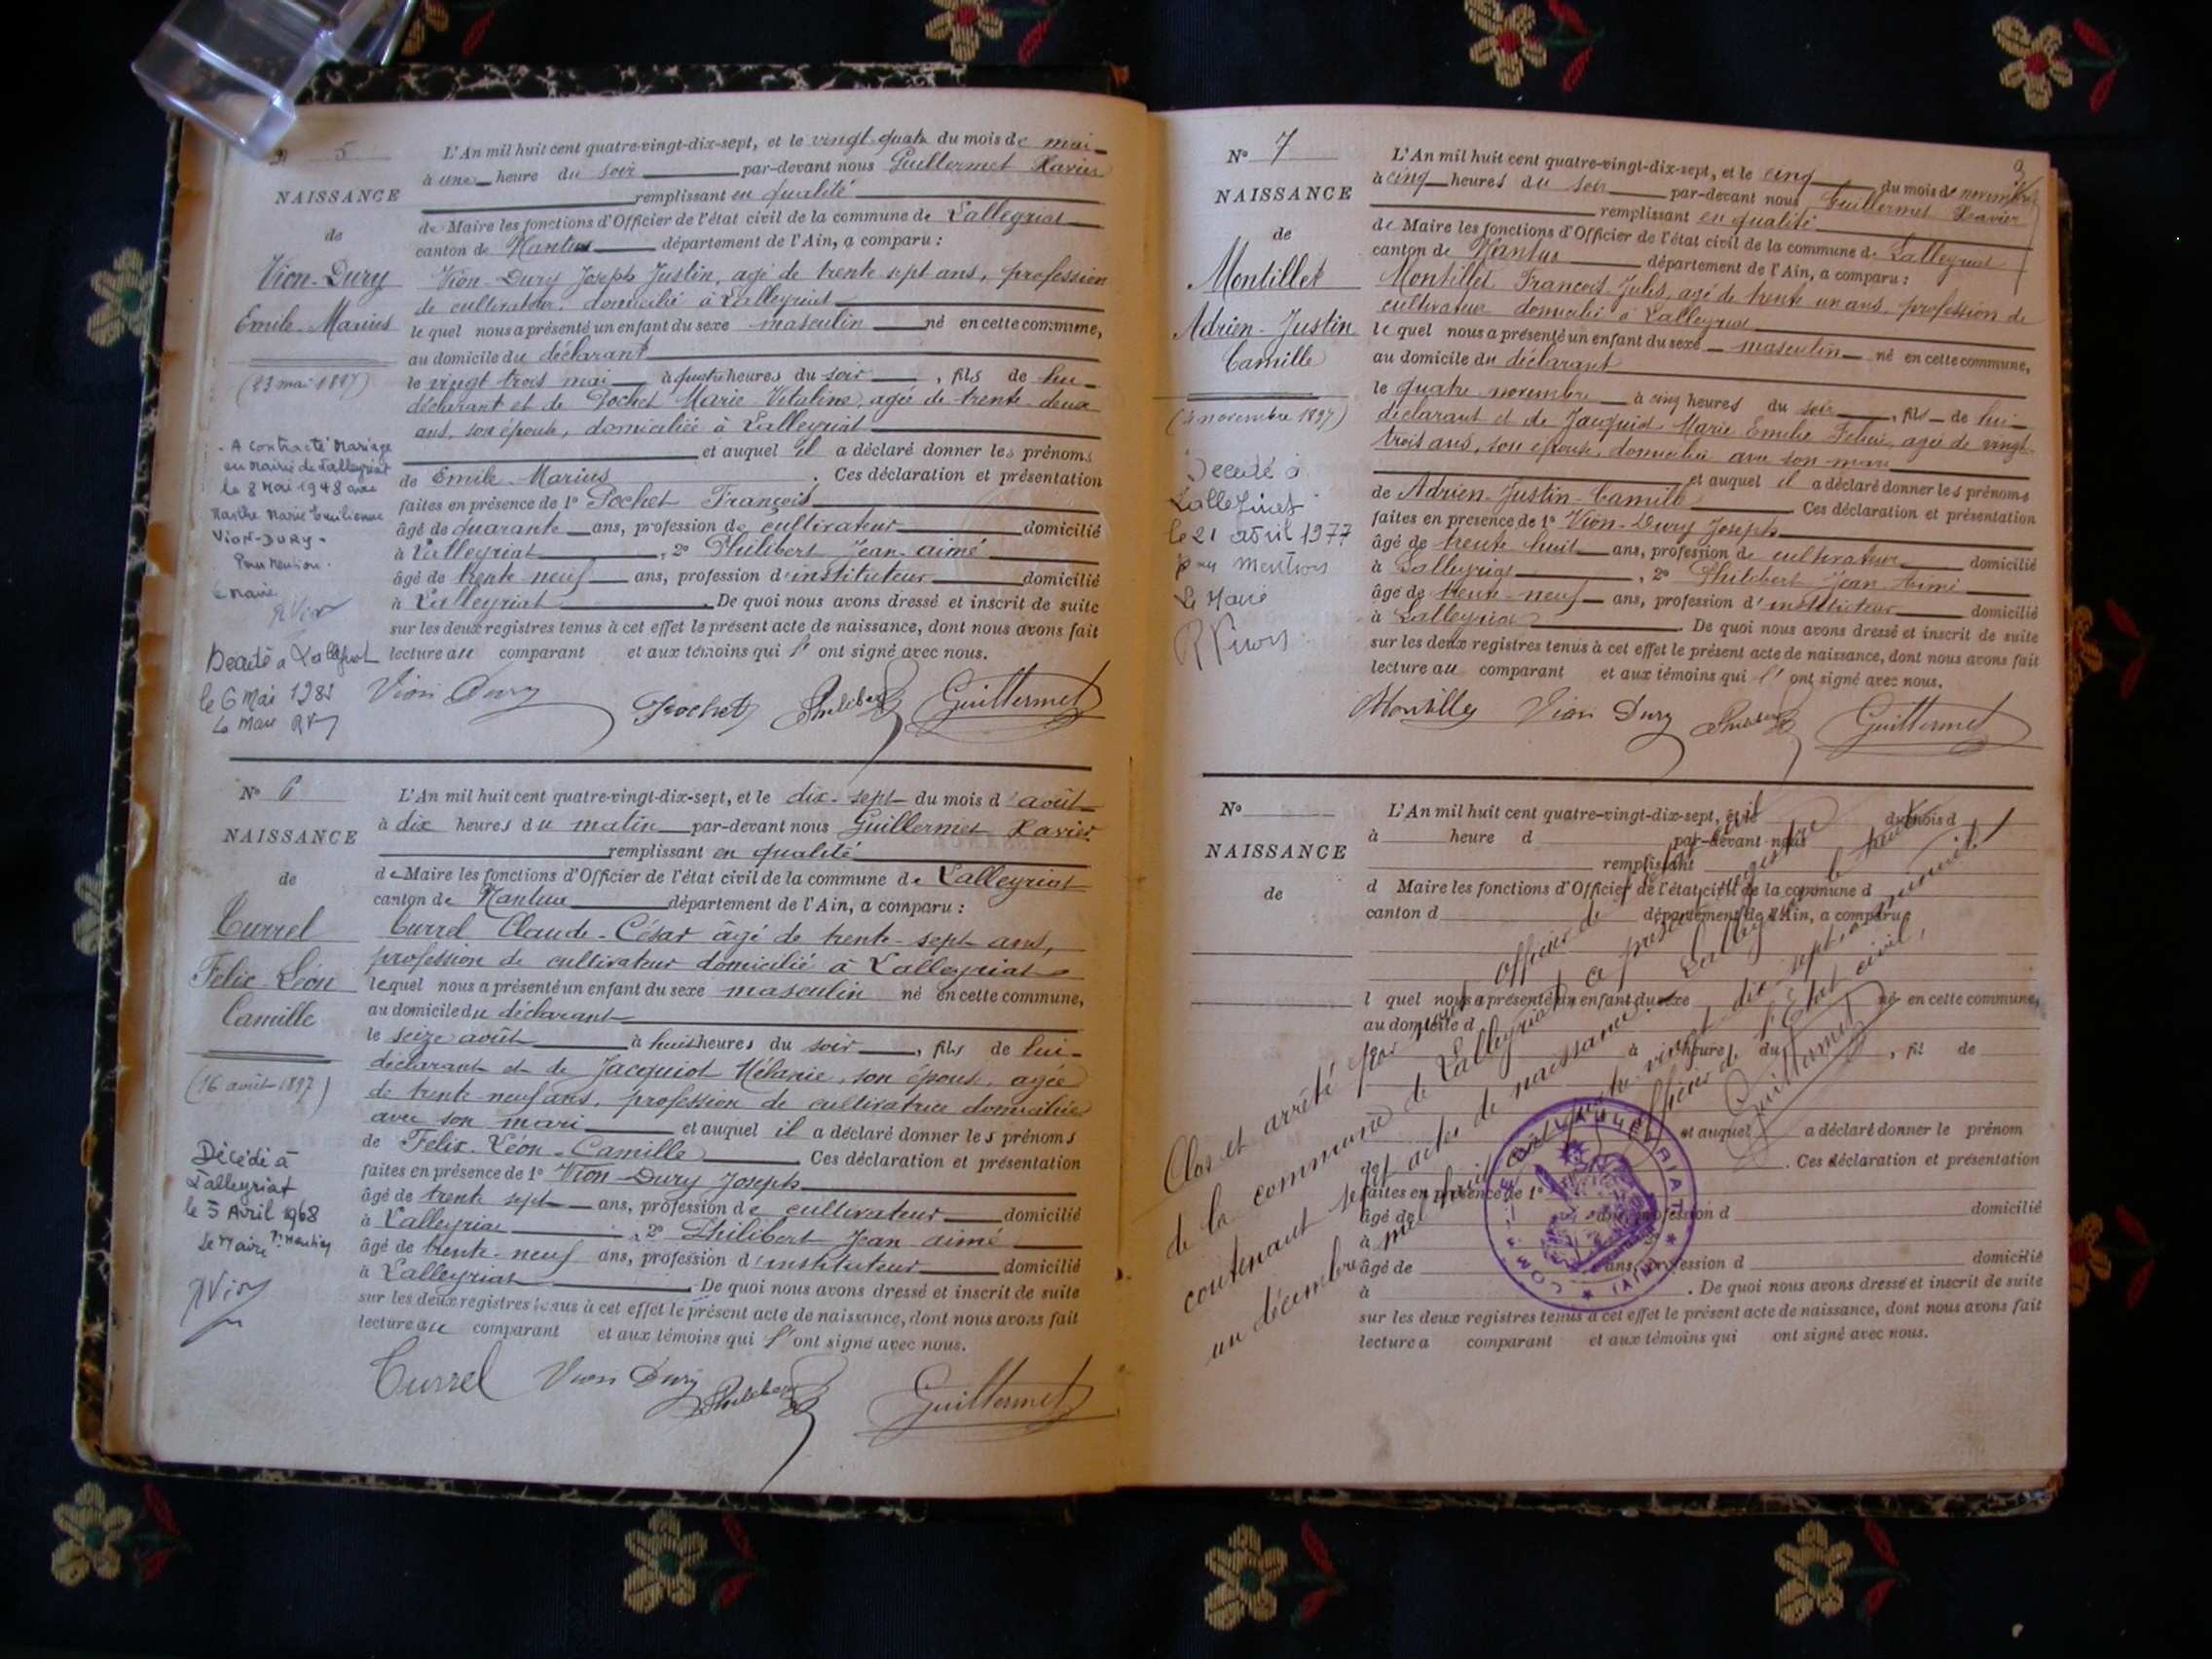 5
L'An mil huit cent quatre-vingt-dix-sept, et le vingt quatre du mois de mai
à une heure du soir par-devant nous Guillermet Xavier
NAISSANCE
remplissant en qualité
de
de Maire les fonctions d'Officier de l'état civil de la commune de Lalleyriat
canton de Nantua département de l'Ain, a comparu :
Vion-Dury
Vion-Dury Joseph Justin, agé de trente sept ans, profession
de cultivateur, domicilié à Lalleyriat
Emile-Marius
le quel nous a présenté un enfant du sexe masculin né en cette commune,
au domicile du déclarant
(23 mai 1897)
le vingt trois mai à quatre heures du soir, fils de lui
déclarant et de Pochet Marie Vitaline, agée de trente deux
ans, son épouse, domiciliée à Lalleyriat
et auquel il a déclaré donner les prénoms
de Emile-Marius. Ces déclaration et présentation
faites en présence de 1° Pochet François
âgé de quarante ans, profession de cultivateur domicilié
à Lalleyriat, 2° Philibert Jean-aimé
âgé de trente neuf ans, profession d'instituteur domicilié
à Lalleyriat. De quoi nous avons dressé et inscrit de suite
sur les deux registres tenus à cet effet le présent acte de naissance, dont nous avons fait
lecture au comparant et aux témoins qui l' ont signé avec nous.
- A contracté Mariage
en Mairie de Lalleyriat
le 8 Mai 1948 avec
Marthe Marie Emilienne
Vion-Dury -
Pour Mention.
Le Maire
Décédé à Lalleyriat
le 6 Mai 198
Le Maire
Vion Dury Pochet Philibert Guillermet
N° 6
L'An mil huit cent quatre-vingt-dix-sept, et le dix-sept du mois d'août
à dix heures du matin par-devant nous Guillermet Xavier
NAISSANCE
remplissant en qualité
de
de Maire les fonctions d'Officier de l'état civil de la commune de Lalleyriat
canton de Nantua département de l'Ain, a comparu :
Currel
Currel Claude-César âgé de trente-sept ans,
profession de cultivateur domicilié à Lalleyriat
Felix-Léon
lequel nous a présenté un enfant du sexe masculin né en cette commune,
Camille
au domicile du déclarant
le seize août à huit heures du soir, fils de lui-
déclarant et de Jacquiot Mélanie, son épouse, agée
(16 août 1897)
de trente neuf ans, profession de cultivatrice domiciliée
avec son mari et auquel il a déclaré donner les prénoms
de Felix-Léon-Camille Ces déclaration et présentation
faites en présence de 1° Vion-Dury Joseph
âgé de trente sept ans, profession de cultivateur domicilié
à Lalleyriat, 2° Philibert Jean aimé
âgé de trente-neuf ans, profession d'instituteur domicilié
à Lalleyriat. De quoi nous avons dressé et inscrit de suite
sur les deux registres tenus à cet effet le présent acte de naissance, dont nous avons fait
lecture au comparant et aux témoins qui l' ont signé avec nous.
Décédé à
Lalleyriat
le 5 Avril 1968
Le Maire Pr Mention
Currel Vion Dury Philibert Guillermet
3
N° 7
L'An mil huit cent quatre-vingt-dix-sept, et le cinq du mois de novembre
à cinq heures du soir par-devant nous Guillermet Xavier
NAISSANCE
remplissant en qualité
de
de Maire les fonctions d'Officier de l'état civil de la commune de Lalleyriat
canton de Nantua département de l'Ain, a comparu :
Montillet
Montillet François-Jules, agé de trente un ans, profession de
cultivateur domicilié à Lalleyriat
Adrien-Justin
le quel nous a présenté un enfant du sexe masculin né en cette commune,
Camille
au domicile du déclarant
le quatre novembre à cinq heures du soir, fils de lui-
(4 novembre 1897)
déclarant et de Jacquiot Marie Emelie Felicie, agée de vingt
trois ans, son épouse, domiciliée avec son mari
et auquel il a déclaré donner les prénoms
de Adrien-Justin-Camille Ces déclaration et présentation
faites en présence de 1° Vion-Dury Joseph
âgé de trente huit ans, profession de cultivateur domicilié
à Lalleyriat, 2° Philibert Jean Aimé
âgé de trente-neuf ans, profession d'instituteur domicilié
à Lalleyriat. De quoi nous avons dressé et inscrit de suite
sur les deux registres tenus à cet effet le présent acte de naissance, dont nous avons fait
lecture au comparant et aux témoins qui l' ont signé avec nous.
Décédé à
Lalleyriat
le 21 avril 1977
pour mention
Le Maire
Montillet Vion Dury Philibert Guillermet
N°
L'An mil huit cent quatre-vingt-dix-sept, et le du mois d
à heure d par-devant nous
NAISSANCE
remplissant
de
d Maire les fonctions d'Officier de l'état civil de la commune d
canton d département de l'Ain, a comparu
l quel nous a présenté un enfant du sexe né en cette commune,
au domicile d
à heure du, fil de
et auquel a déclaré donner le prénom
. Ces déclaration et présentation
faites en présence de 1°
âgé de ans, profession d domicilié
à
âgé de ans, profession d domicilié
à . De quoi nous avons dressé et inscrit de suite
sur les deux registres tenus à cet effet le présent acte de naissance, dont nous avons fait
lecture a comparant et aux témoins qui ont signé avec nous.
Clos et arrêté par nous officier de l'état civil
de la commune de Lalleyriat le présent registre
contenant sept actes de naissance. Lalleyriat le trente
un décembre mil huit cent quatre vingt dix-sept à minuit
L'officier de l'Etat civil,
Guillermet
COMMUNE DE LALLEYRIAT * (AIN) *